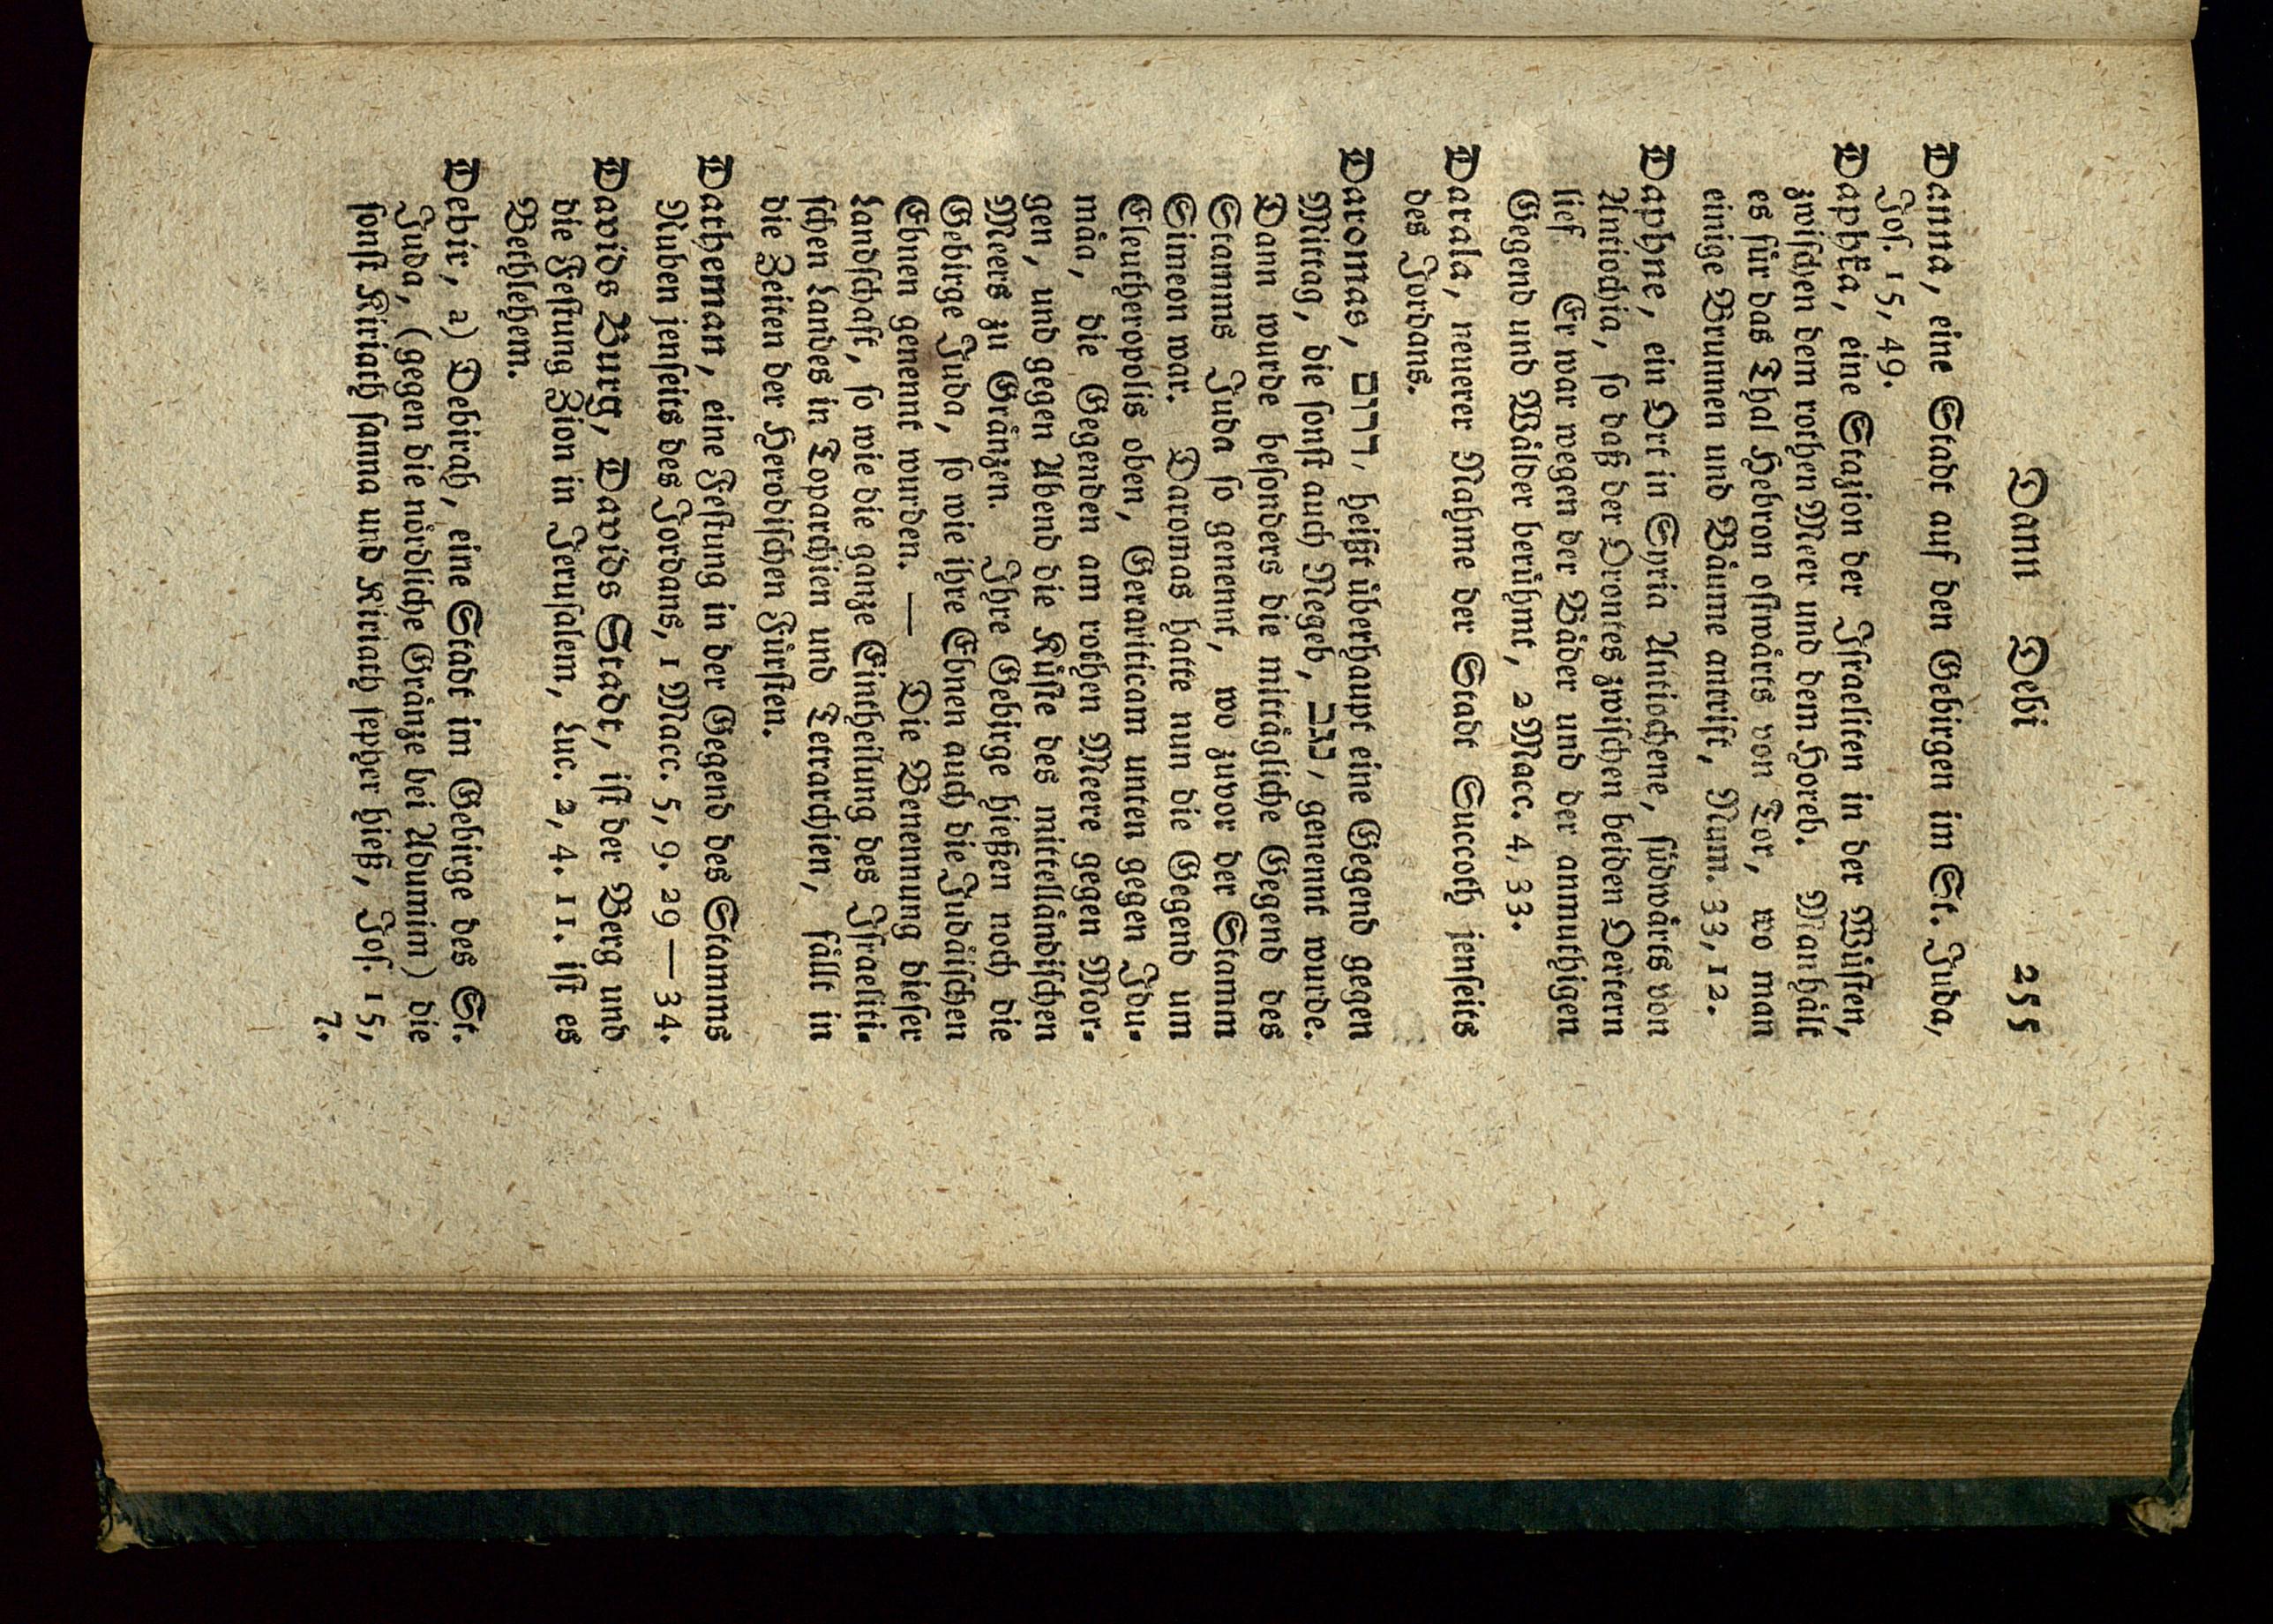 Dann Debi 255
Danna, eine Stadt auf den Gebirgen im St. Juda,
Joſ. 15, 49.
Daphka, eine Stazion der Iſraeliten in der Wüſten,
zwiſchen dem rothen Meer und dem Horeb. Man hält
es für das Thal Hebron oſtwärts von Tor, wo man
einige Brunnen und Bäume antrift, Num. 33, 12.
Daphne, ein Ort in Syria Antiochene, ſüdwärts von
Antiochia, ſo daß der Orontes zwiſchen beiden Oertern
lief Er war wegen der Bäder und der anmuthigen
Gegend und Wälder berühmt, 2 Macc. 4, 33.
Darala, neuerer Nahme der Stadt Succoth jenſeits
des Jordans.
Daromas, דרום, heißt überhaupt eine Gegend gegen
Mittag, die ſonſt auch Negeb, נגב, genennt wurde.
Dann wurde beſonders die mittägliche Gegend des
Stamms Juda ſo genennt, wo zuvor der Stamm
Simeon war. Daromas hatte nun die Gegend um
Eleutheropolis oben, Gerariticam unten gegen Idu-
mäa, die Gegenden am rothen Meere gegen Mor-
gen, und gegen Abend die Küſte des mittelländiſchen
Meers zu Gränzen. Ihre Gebirge hießen noch die
Gebirge Juda, ſo wie ihre Ebnen auch die Judäiſchen
Ebnen genennt wurden. — Die Benennung dieſer
Landſchaft, ſo wie die ganze Eintheilung des Iſraeliti-
ſchen Landes in Toparchien und Tetrarchien, fällt in
die Zeiten der Herodiſchen Fürſten.
Datheman, eine Feſtung in der Gegend des Stamms
Ruben jenſeits des Jordans, 1 Macc. 5, 9. 29—34.
Davids Burg, Davids Stadt, iſt der Berg und
die Feſtung Zion in Jeruſalem, Luc. 2, 4. 11. iſt es
Bethlehem.
Debir, a) Debirah, eine Stadt im Gebirge des St.
Juda, (gegen die nördliche Gränze bei Adumim) die
ſonſt Kiriath ſanna und Kiriath ſepher hieß, Joſ. 15,
7.